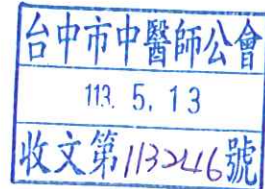 台中市中醫師公會
113. 5. 13
收文第113246號